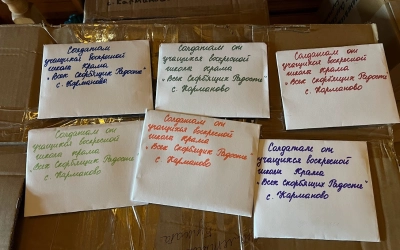 Солдатам от
учащихся воскресной
школы храма
"Всех Скорбящих Радость"
с. Карманово
Солдатам от
учащихся воскресной
школы Храма
"Всех Скорбящих Радость"
с. Карманово
Солдатам от
учащихся воскресной
школы Храма
"Всех Скорбящих Радость"
с. Карманово
Солдатам от
учащихся воскресной
школы Храма
"Всех Скорбящих Радость"
с. Карманово
Солдатам от
учащихся воскресной
школы Храма
"Всех Скорбящих Радость"
с. Карманово
Солдатам от
учащихся воскресной
школы Храма
"Всех Скорбящих Радость"
с. Карманово